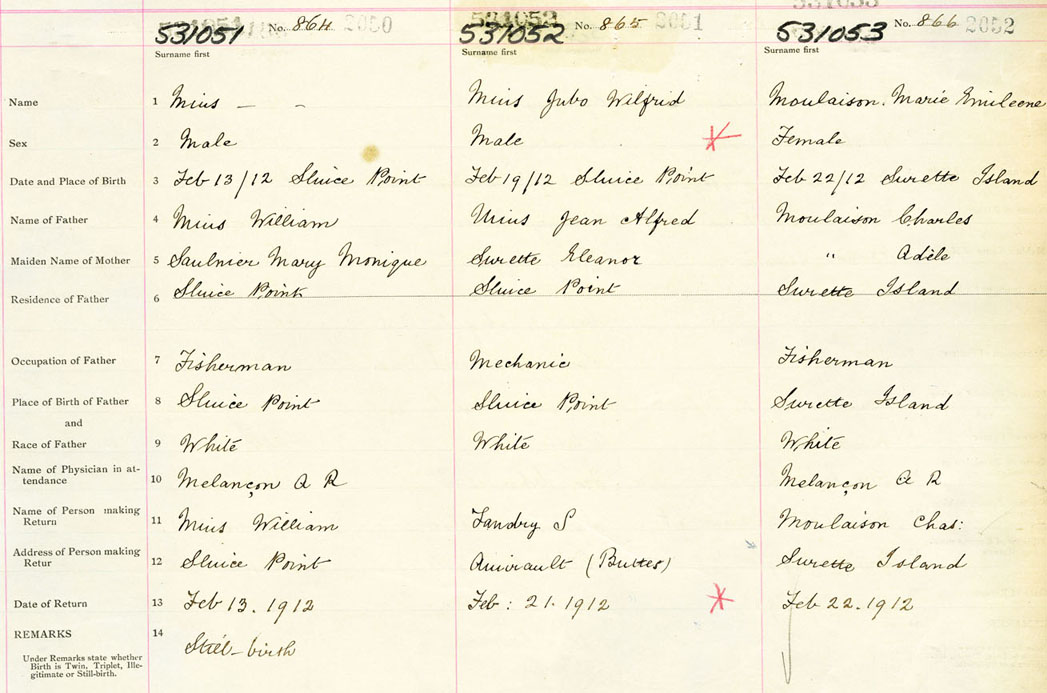 531051 No. 864 2050 531052 No. 865 2051 531053 No. 866 2052
Surname first Surname first Surname first
Name 1 Mius — - Mius Jubo Wilfrid Moulaison. Marie Emileene
Sex 2 Male Male Female
Date and Place of Birth 3 Feb 13/12 Sluice Point Feb 19/12 Sluice Point Feb 22/12 Surette Island
Name of Father 4 Mius William Mius Jean Alfred Moulaison Charles
Maiden Name of Mother 5 Saulnier Mary Monique Surette Eleanor " Adèle
Residence of Father 6 Sluice Point Sluice Point Surette Island
Occupation of Father 7 Fisherman Mechanic Fisherman
Place of Birth of Father 8 Sluice Point Sluice Point Surette Island
and
Race of Father 9 White White White
Name of Physician in at-
tendance 10 Melançon A R Melançon A R
Name of Person making
Return 11 Mius William Landry S Moulaison Chas:
Address of Person making
Retur 12 Sluice Point Amirault (Buttes) Surette Island
Date of Return 13 Feb 13. 1912 Feb: 21. 1912 Feb 22. 1912
REMARKS 14 Still-birth
Under Remarks state whether
Birth is Twin, Triplet, Ille-
gitimate or Still-birth.